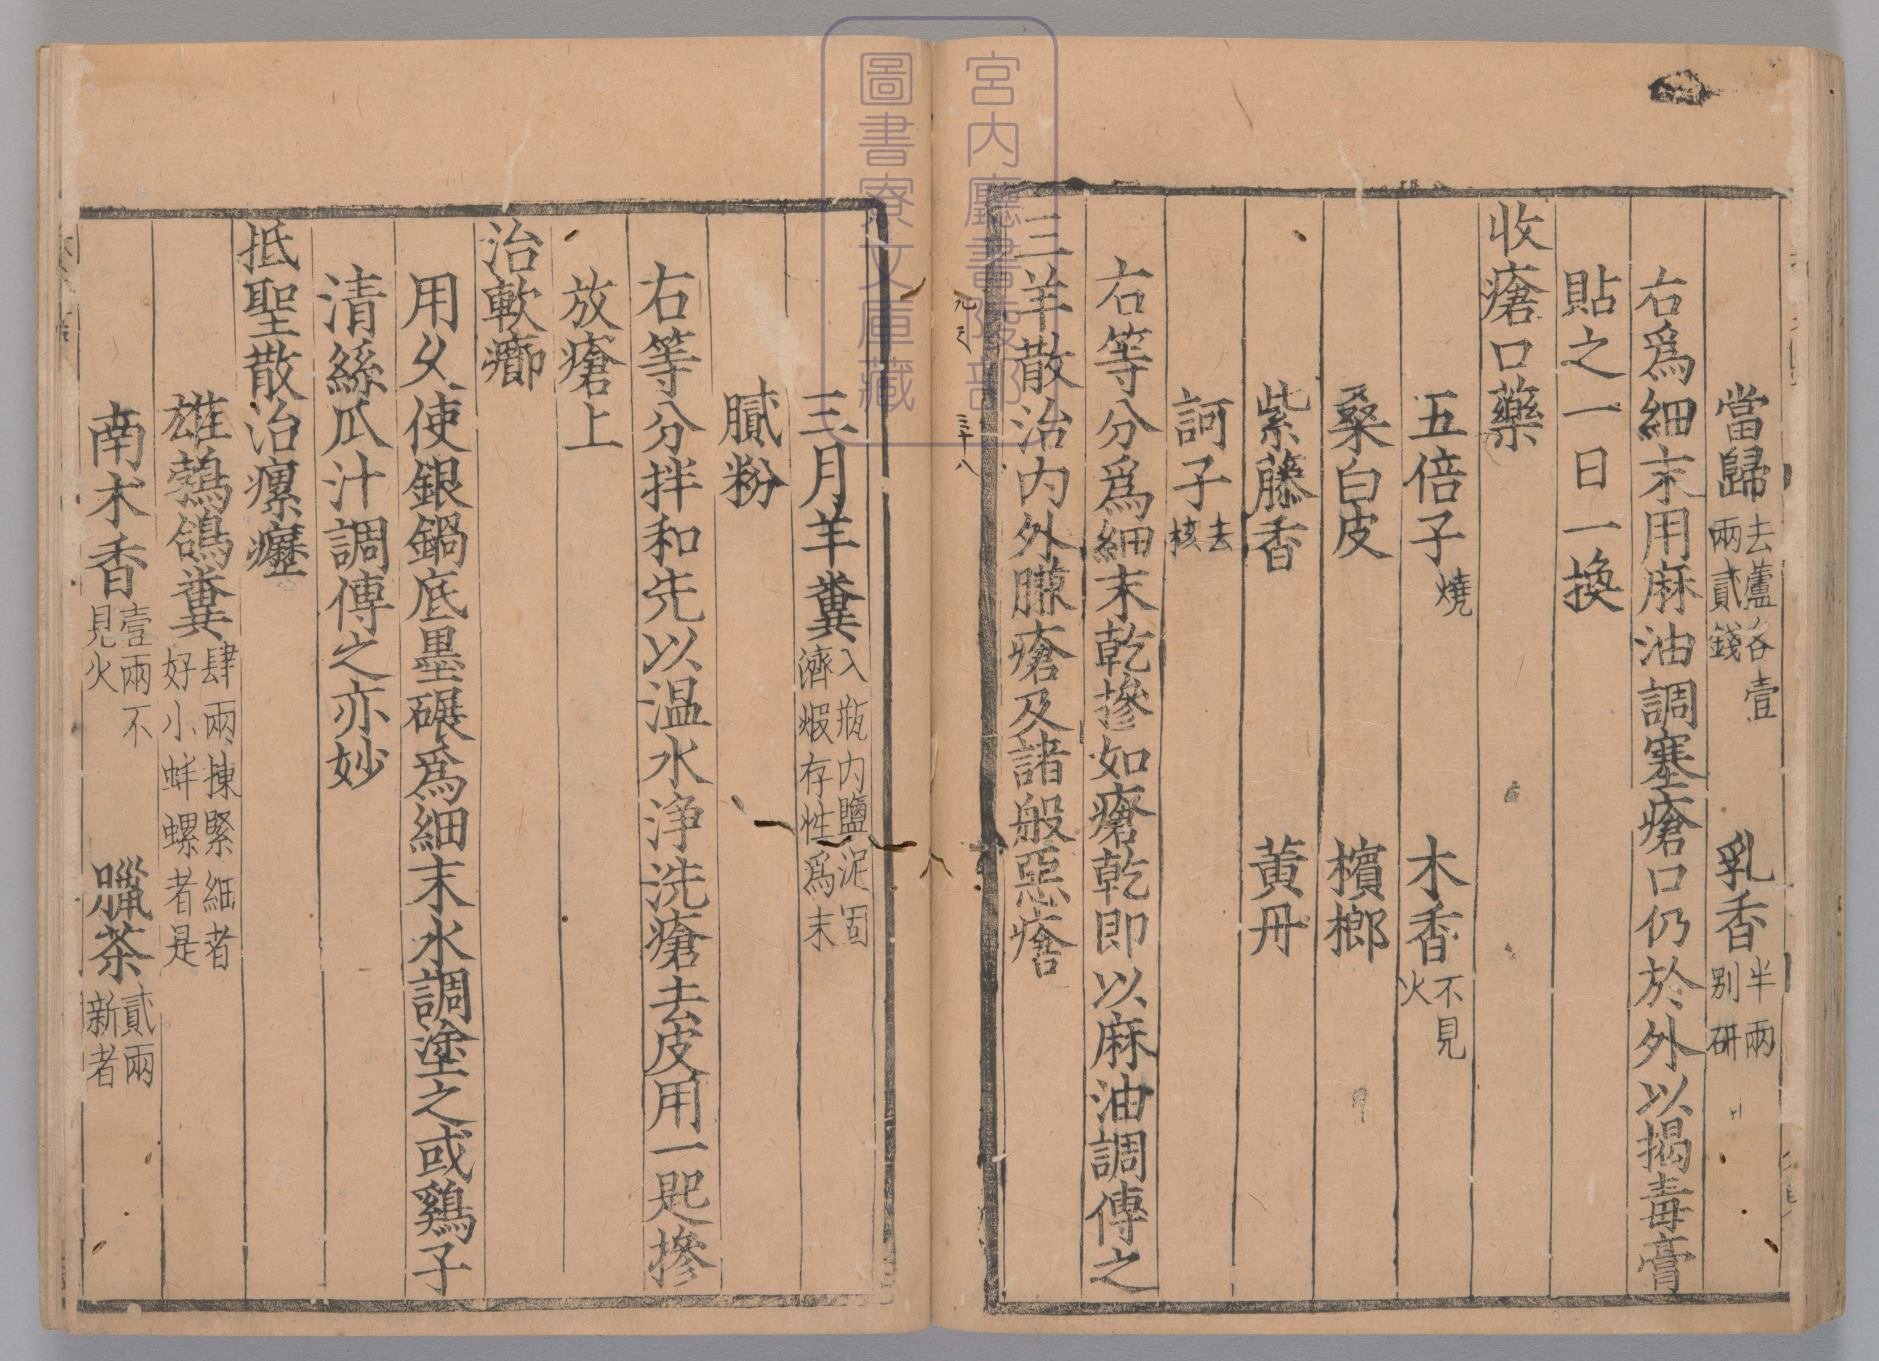 當歸去蘆各壹兩貳錢　乳香半兩別研
右爲細末用麻油調塞瘡口仍於外以揭毒膏
貼之一日一換
收瘡口藥
五倍子燒　木香不見火
桑白皮　檳榔
紫藤香　黄丹
訶子去核
右等分爲細末乾摻如瘡乾即以麻油調傅之
三羊散治内外臁瘡及諸般惡瘡
三月羊糞入瓶内鹽泥固濟煆存性爲末
膩粉
右等分拌和先以温水浄洗瘡去皮用一匙摻
放瘡上
治軟癤
用久使銀鍋底墨碾爲細末水調塗之或鷄子
清絲瓜汁調傅之亦妙
抵聖散治瘰癧
雄鵓鴿糞肆兩揀緊細者好小蚌螺者是
南木香壹兩不見火　臘茶貳兩新者
宮内廳書陵部
圖書寮文庫藏